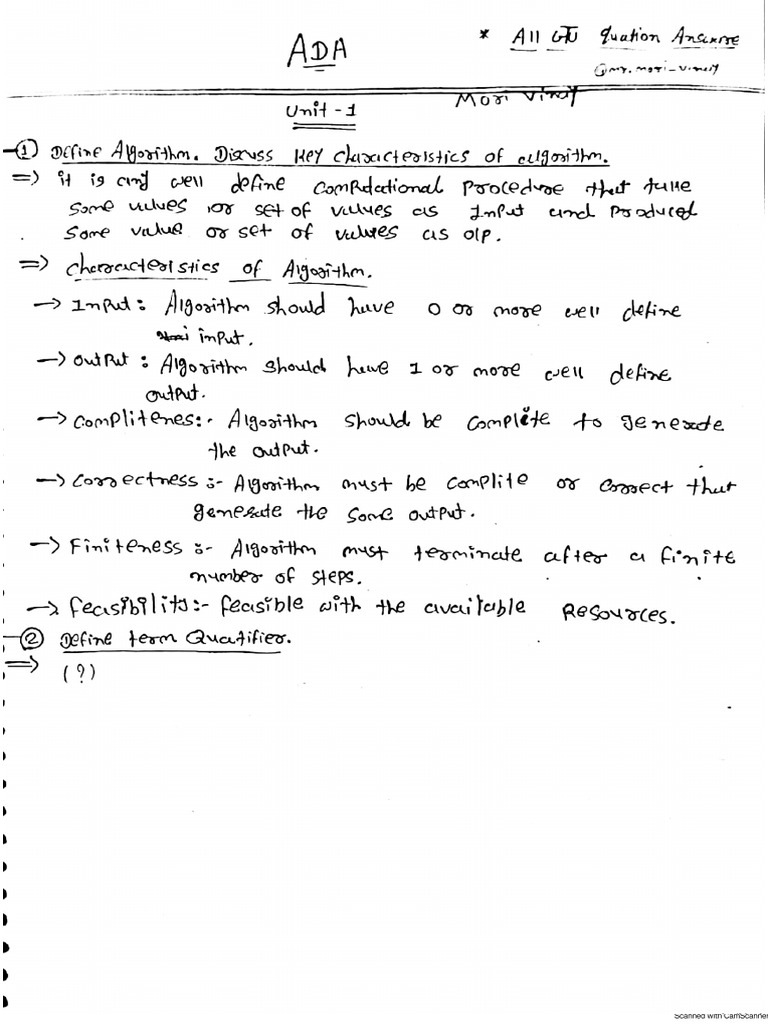 ADA
* All GTU Quation Answre
@mr.mori_vinit
Mori Vinit
Unit-1
① Define Algorithm. Discuss key characteristics of algorithm.
=> it is any well define computational procedure that take
some values or set of values as Input and produced
some value or set of values as o/p.
=> characteristics of Algorithm.
→ Input: Algorithm should have 0 or more well define
input.
→ output: Algorithm should have 1 or more well define
output.
→ Complitenes:- Algorithm should be complite to generate
the output.
→ Correctness :- Algorithm must be complite or correct that
generate the some output.
→ Finiteness :- Algorithm must terminate after a finite
number of steps.
→ feasibility:- feasible with the available Resources.
② Define term Quatifier.
=> (?)
Scanned with CamScanner